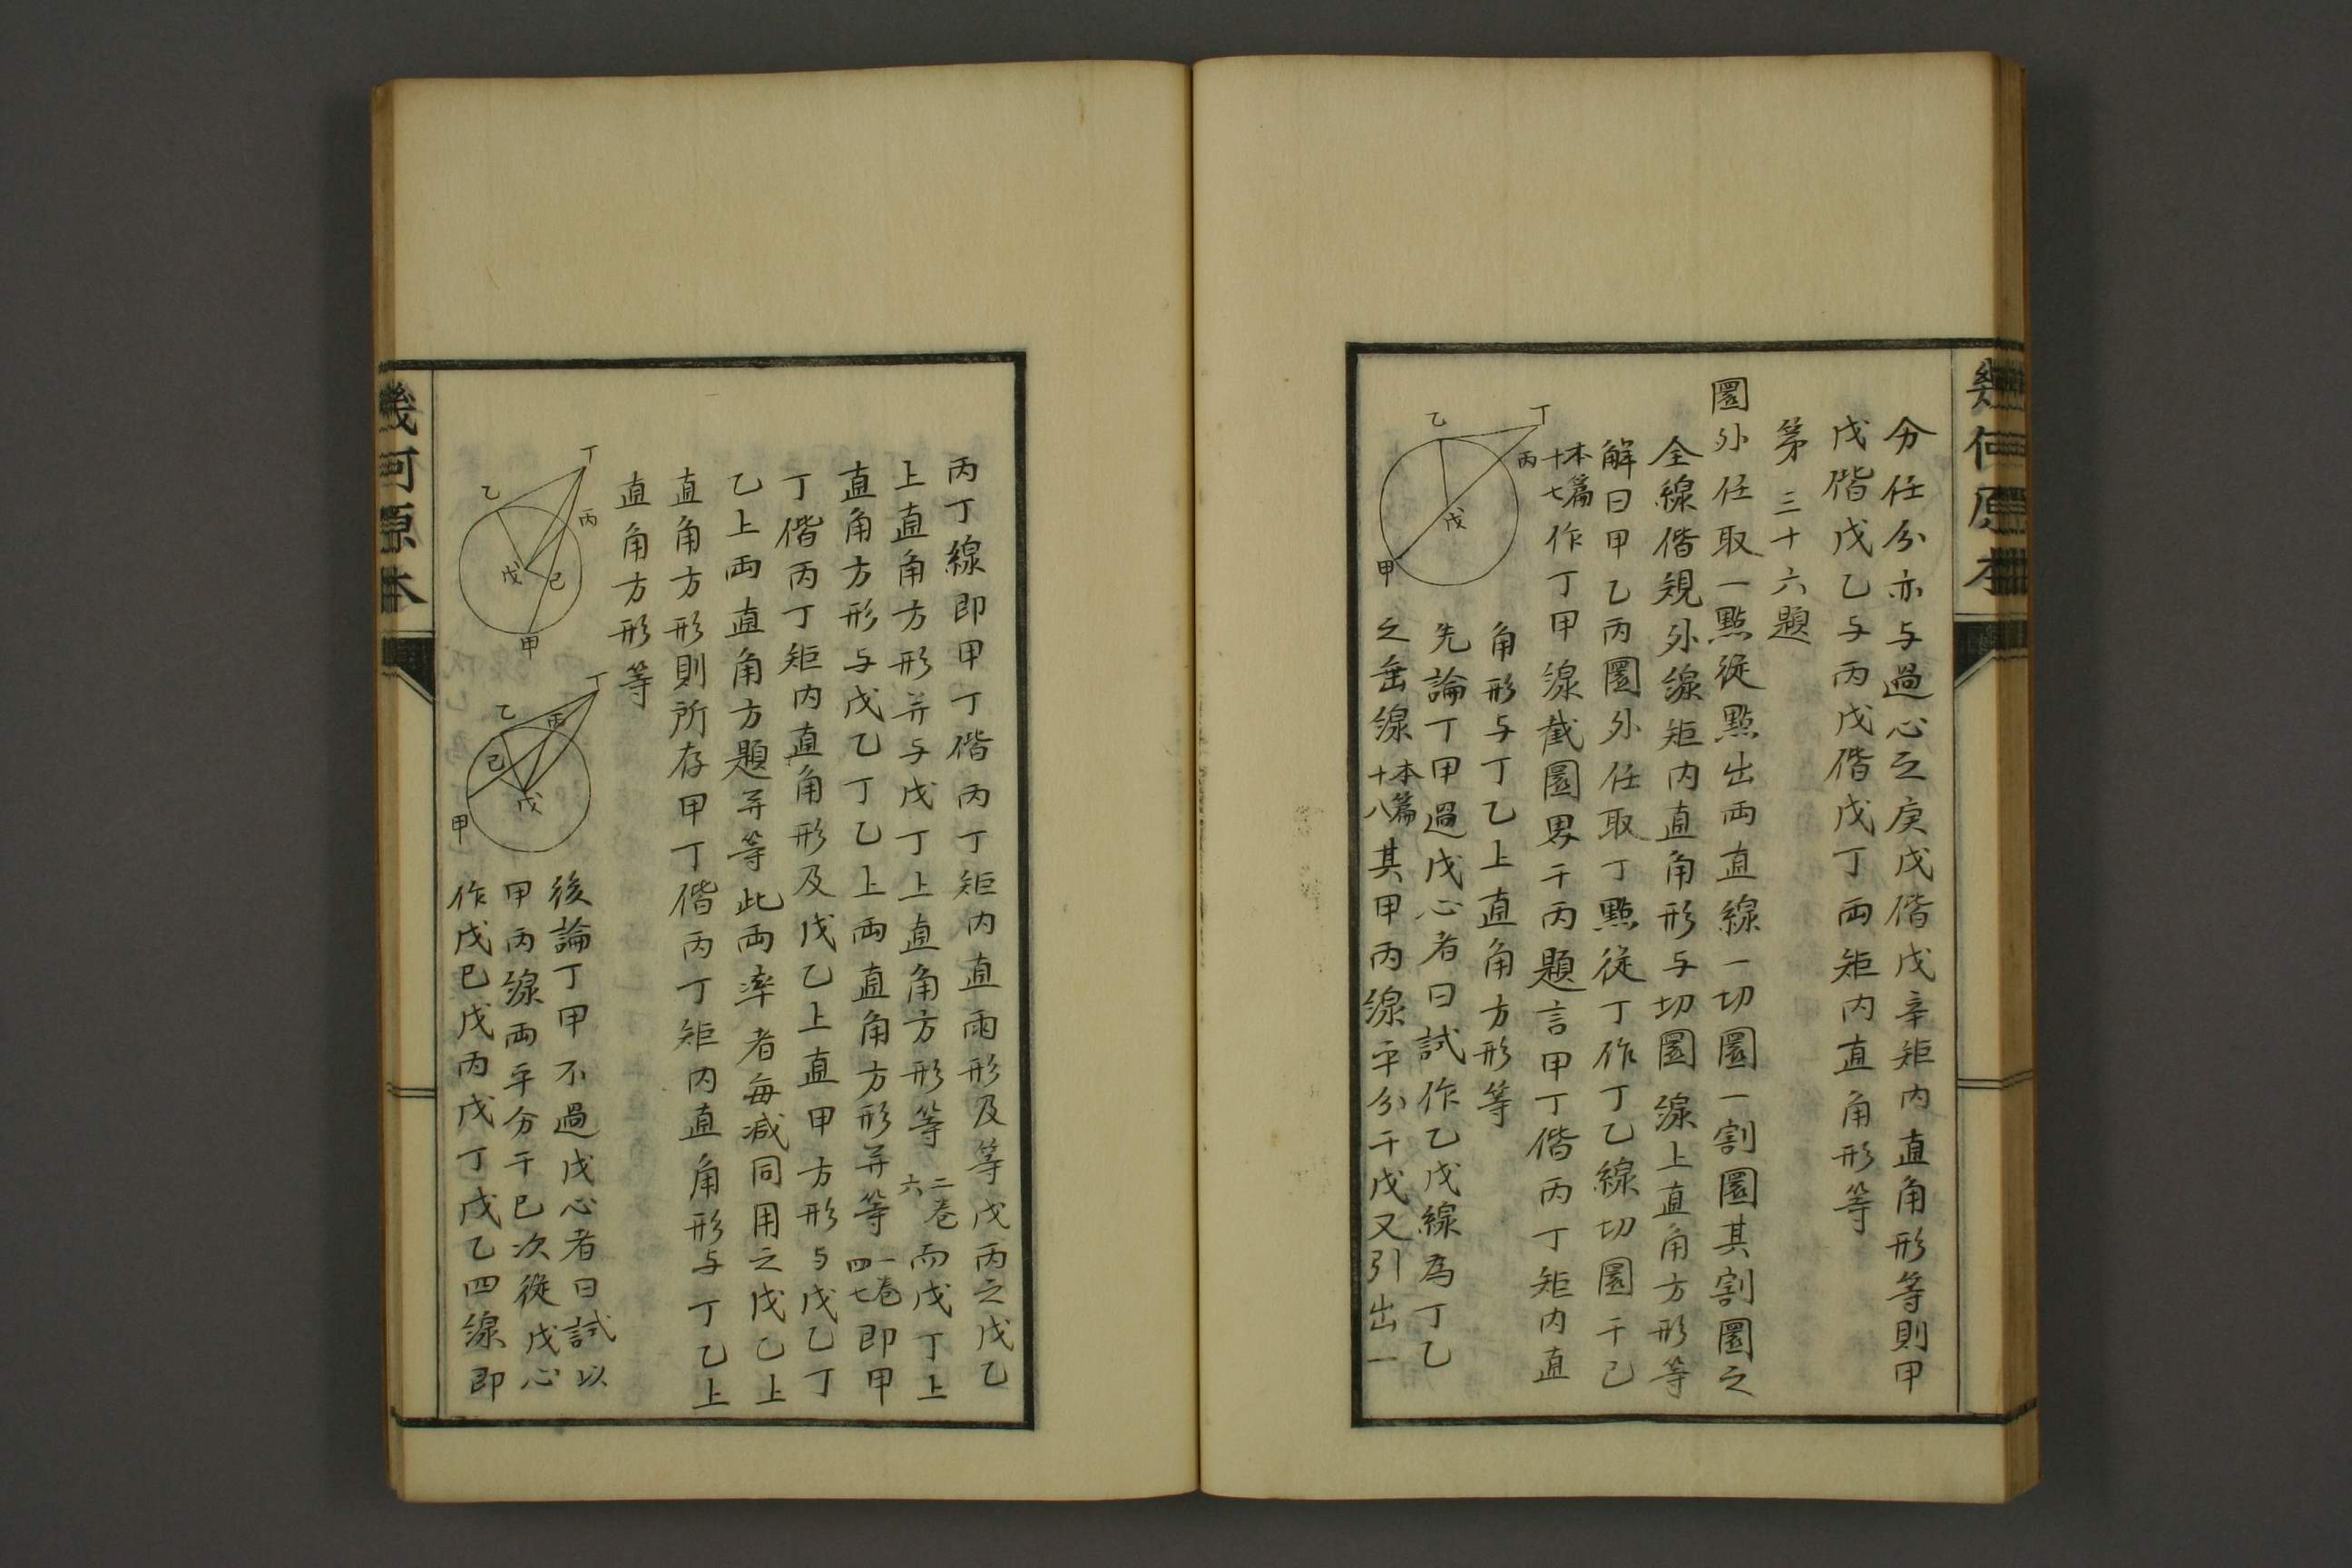 幾何原本
分任分亦与過心之庚戊偕戊辛矩内直角形等則甲
戊偕戊乙与丙戊偕戊丁両矩内直角形等
第三十六題
圜外任取一點從點出両直線一切圜一割圜其割圜之
全線偕規外線矩内直角形与切圜線上直角方形等
解曰甲乙丙圜外任取丁點從丁作丁乙線切圜于己
本篇
十七
作丁甲線截圜界于丙題言甲丁偕丙丁矩内直
角形与丁乙上直角方形等
先論丁甲過戊心者曰試作乙戊線為丁乙
之垂線
本篇
十八
其甲丙線平分于戊又引出一
丁
乙
丙
戊
甲
丙丁線即甲丁偕丙丁矩内直雨形及等戊丙之戊乙
上直角方形并与戊丁上直角方形等
二卷
六
而戊丁上
直角方形与戊乙丁乙上両直角方形并等
一卷
四七
即甲
丁偕丙丁矩内直角形及戊乙上直甲方形与戊乙丁
乙上両直角方題并等此両率者每减同用之戊乙上
直角方形則所存甲丁偕丙丁矩内直角形与丁乙上
直角方形等
丁
乙
丙
戊
己
甲
丁
乙
丙
己
戊
甲
後論丁甲不過戊心者曰試以
甲丙線両平分于已次從戊心
作戊已戊丙戊丁戊乙四線即
幾何原本